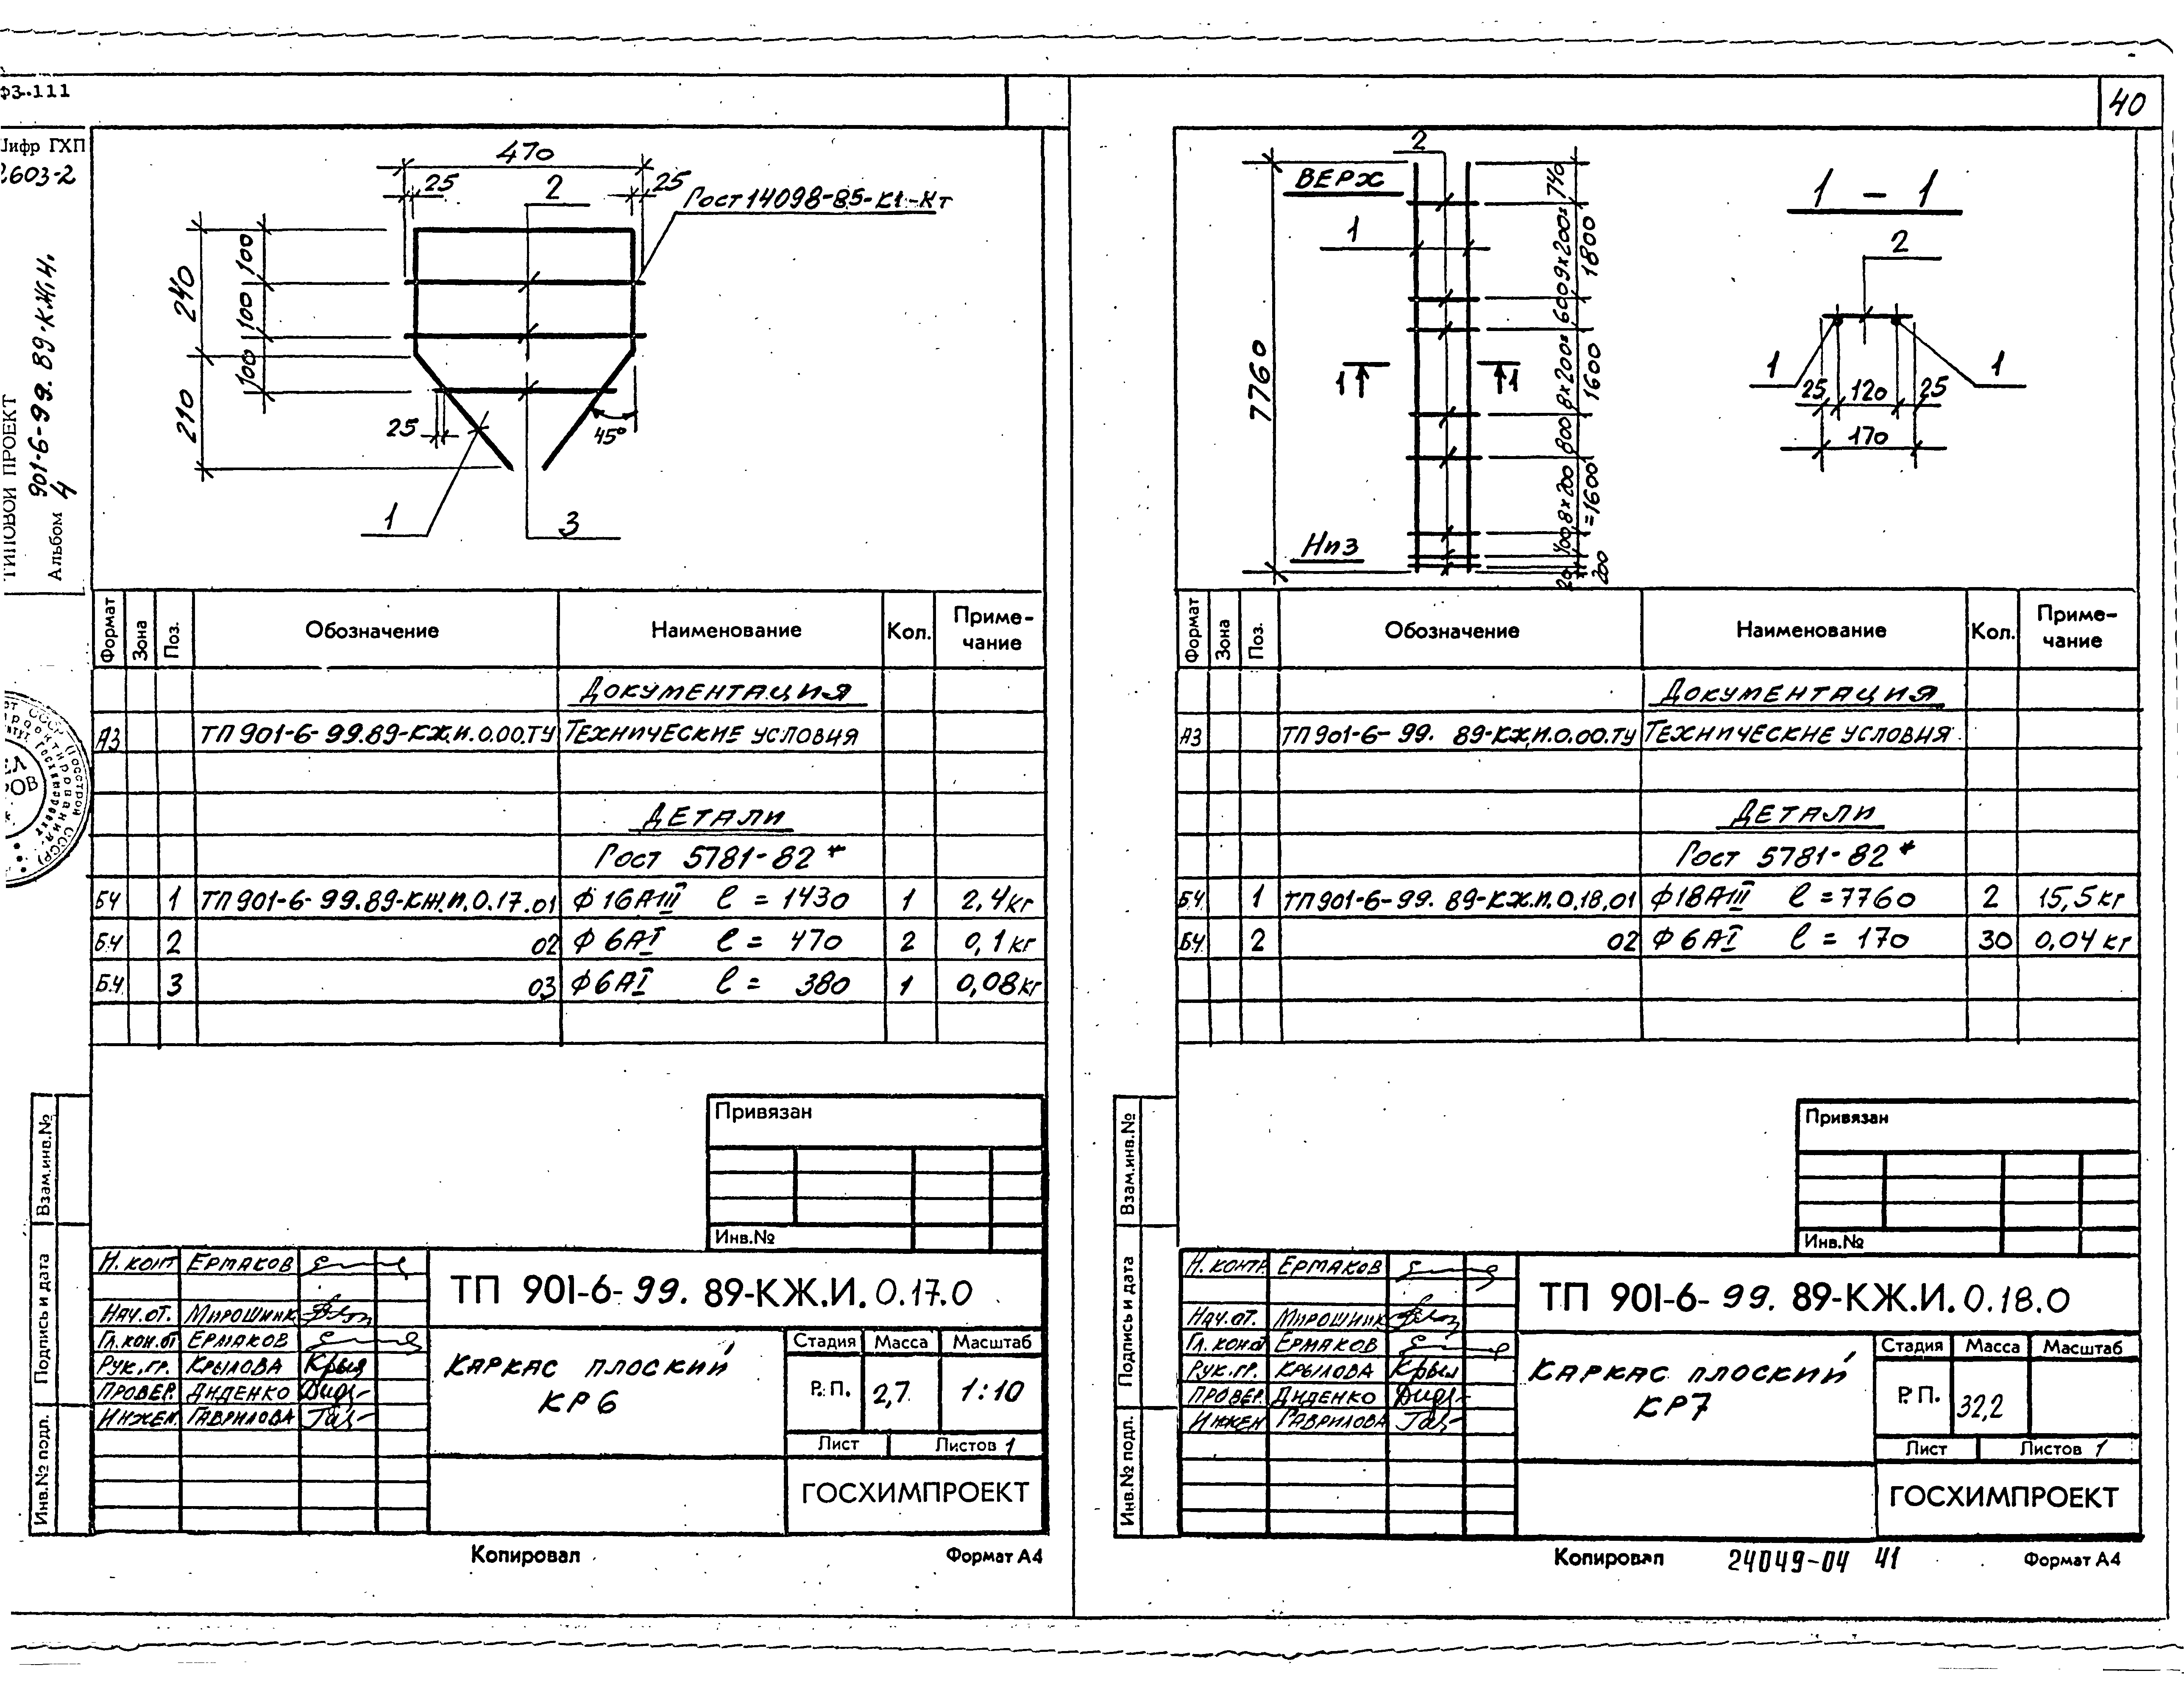 ФЗ-111
40
Шифр ГХП
2603-2
ТИПОВОЙ ПРОЕКТ
901-6-99.89-КЖ.И.
Альбом 4
470
25
2
25
Гост 14098-85-К1-Кт
240
210
100
100
100
25
45°
1
3
Формат
Зона
Поз.
Обозначение
Наименование
Кол.
Приме-
чание
Документация
А3 ТП901-6-99.89-КЖ.И.0.00.ТУ Технические условия
Детали
Гост 5781-82*
БЧ 1 ТП901-6-99.89-КЖ.И.0.17.01 Ф16АIII ℓ=1430 1 2,4кг
БЧ 2 02 Ф6АI ℓ= 470 2 0,1кг
БЧ 3 03 Ф6АI ℓ= 380 1 0,08кг
Привязан
Инв.№
Взам.инв.№
Подпись и дата
Инв.№ подл.
Н. конт Ермаков
Нач.от. Мирошник
Гл.кон.от Ермаков
Рук.гр. Крылова
Провер. Диденко
Инжен. Гаврилова
ТП 901-6-99.89-КЖ.И.0.17.0
Каркас плоский
КР6
Стадия Масса Масштаб
Р.П. 2,7 1:10
Лист Листов 1
ГОСХИМПРОЕКТ
Копировал
Формат А4
2
ВЕРХ
1
7760
Низ
1 1
740
9х200=
1800
600
8х200=
1600
800
8х200
=1600
400
200
20
1 - 1
2
1
1
25 120 25
170
Формат
Зона
Поз.
Обозначение
Наименование
Кол.
Приме-
чание
Документация
А3 ТП901-6-99.89-КЖ.И.0.00.ТУ Технические условия
Детали
Гост 5781-82*
БЧ 1 ТП901-6-99.89-КЖ.И.0.18.01 Ф18АIII ℓ=7760 2 15,5кг
БЧ 2 02 Ф6АI ℓ= 170 30 0,04кг
Привязан
Инв.№
Взам.инв.№
Подпись и дата
Инв.№ подл.
Н. контр. Ермаков
Нач.от. Мирошник
Гл.кон.от Ермаков
Рук.гр. Крылова
Провер. Диденко
Инжен Гаврилова
ТП 901-6-99.89-КЖ.И.0.18.0
Каркас плоский
КР7
Стадия Масса Масштаб
Р.П. 32,2
Лист Листов 1
ГОСХИМПРОЕКТ
Копировал 24049-04 41
Формат А4